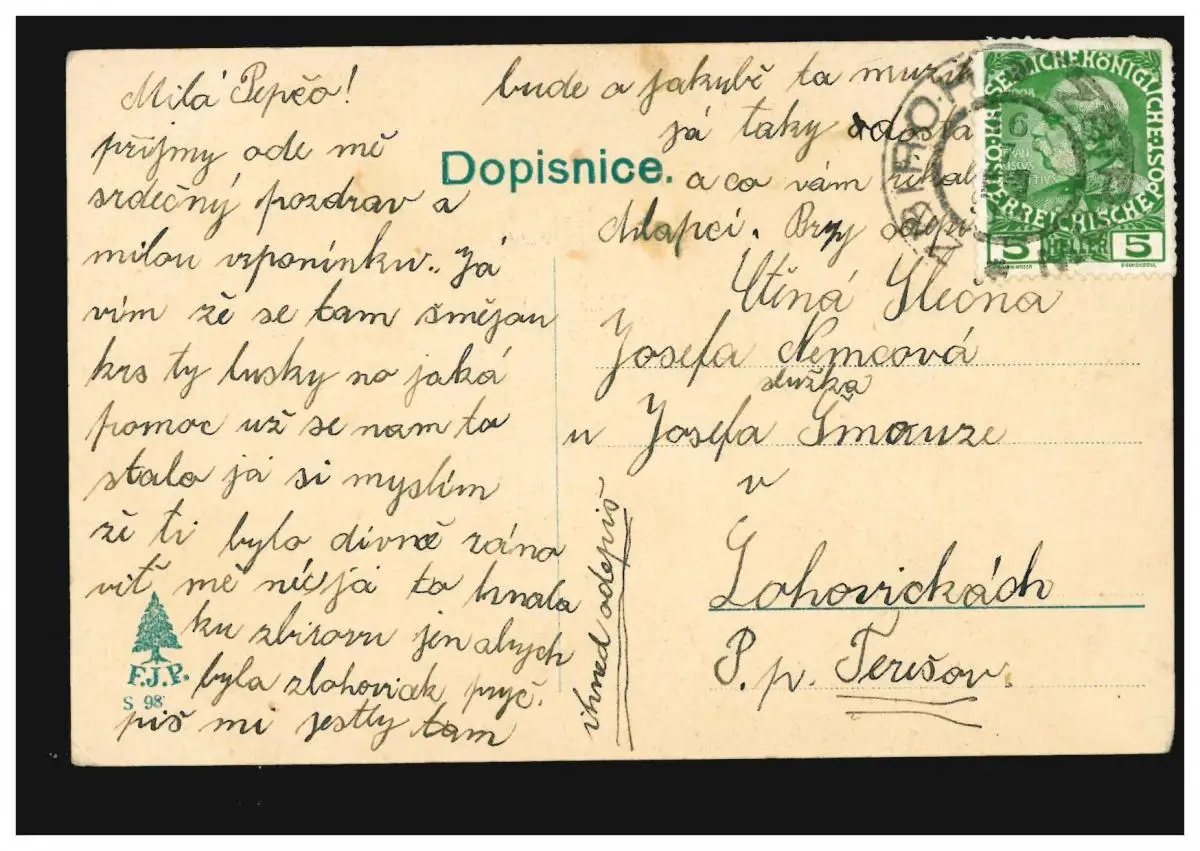 Milá Pepčo!
příjmy ode mě
srdečný pozdrav a
milou vzponínku. Já
vím žě se tam šmějou
krs ty lusky no jaká
pomoc už se nam to
stalo já si myslím
žě ti bylo divně ráno
viť mě nic já to hnala
ku zbirovu jen abych
byla zlohoviček pryč.
piš mi jestly tam
bude a jakubě ta muzik
já taky dosta
a co vám řikal
chlapci. Brzy odepi
ihned odepiš
Dopisnice.
Ctěná Slečna
Josefa Nemcová
služka
u Josefa Šmauze
v
Lohovičkách
P. p. Terešov.
F.J.P.
S 98
KAISERLICHEKÖNIGLICHE POST
ÖSTERREICHISCHE
5 HELLER 5
ZBIRO